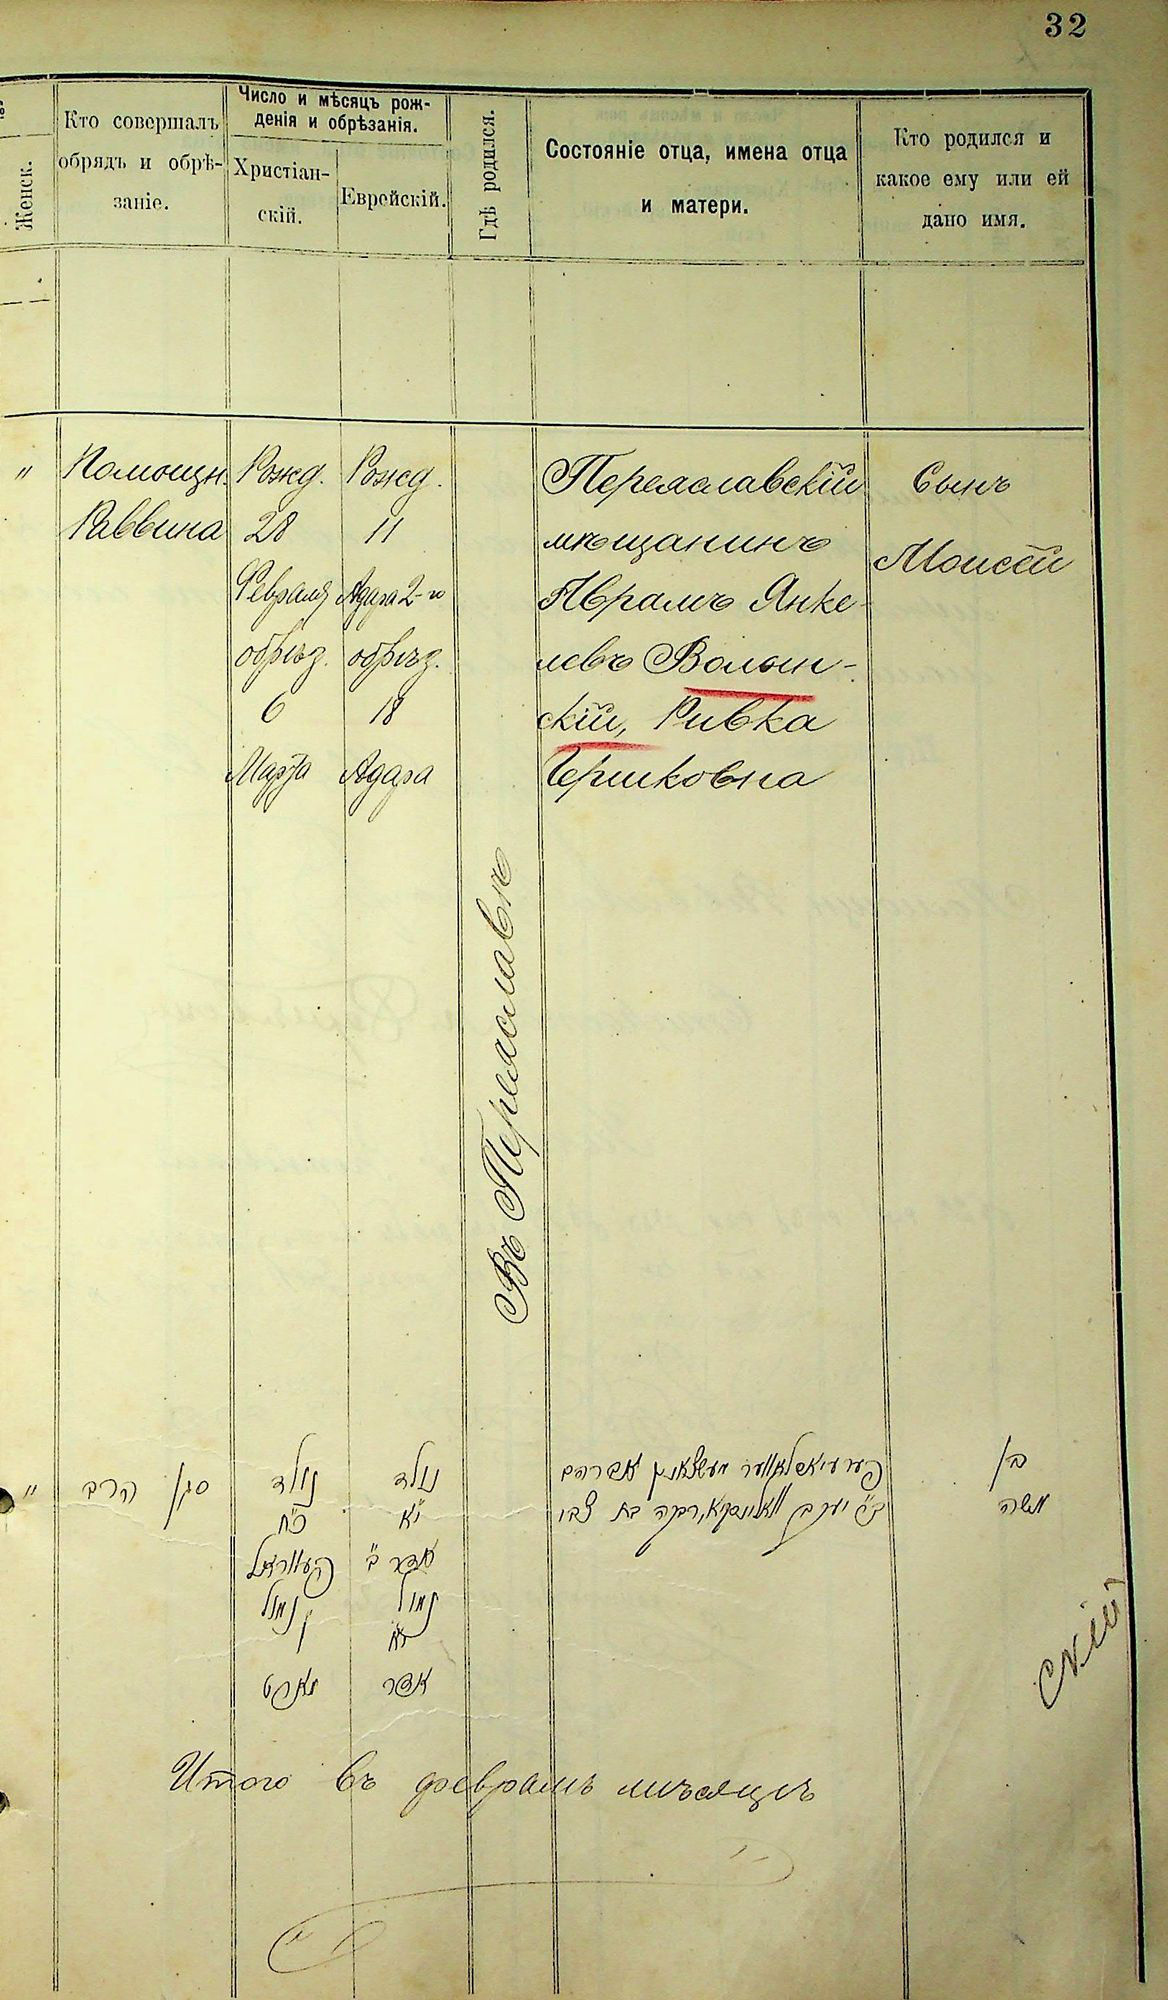 32
Женск.
Кто совершалъ
обрядъ и обрѣ-
заніе.
Число и мѣсяцъ рож-
денія и обрѣзанія.
Христіан-
скій.
Еврейскій.
Гдѣ родился.
Состояніе отца, имена отца
и матери.
Кто родился и
какое ему или ей
дано имя.
"
Помощн.
Раввина
Рожд.
28
Февраля
обрѣз.
6
Марта
Рожд.
11
Адара 2-го
обрѣз.
18
Адара
Въ Переяславѣ
Переяславскій
мѣщанинъ
Аврамъ Янке-
левъ Волын-
скій, Ривка
Гершковна
Сынъ
Моисей
"
סגן הרב
נולד
כ״ח
פעווראל
נמול
ו
מארט
נולד
י״א
אדר ב״
נמול
י״ח
אדר
פערעיאסלאווער מעשצאנין אברהם
ב״ר יעקב וואלינסקי, רבקה בת צבי
בן
משה
скій
Итого въ февралѣ мѣсяцѣ